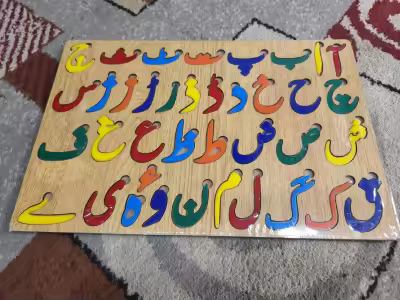 آ ا ب پ ت ٹ ث ج
چ ح خ د ڈ ذ ر ڑ ز ژ س
ش ص ض ط ظ ع غ ف
ق ک گ ل م ن و ء ہ ی ے